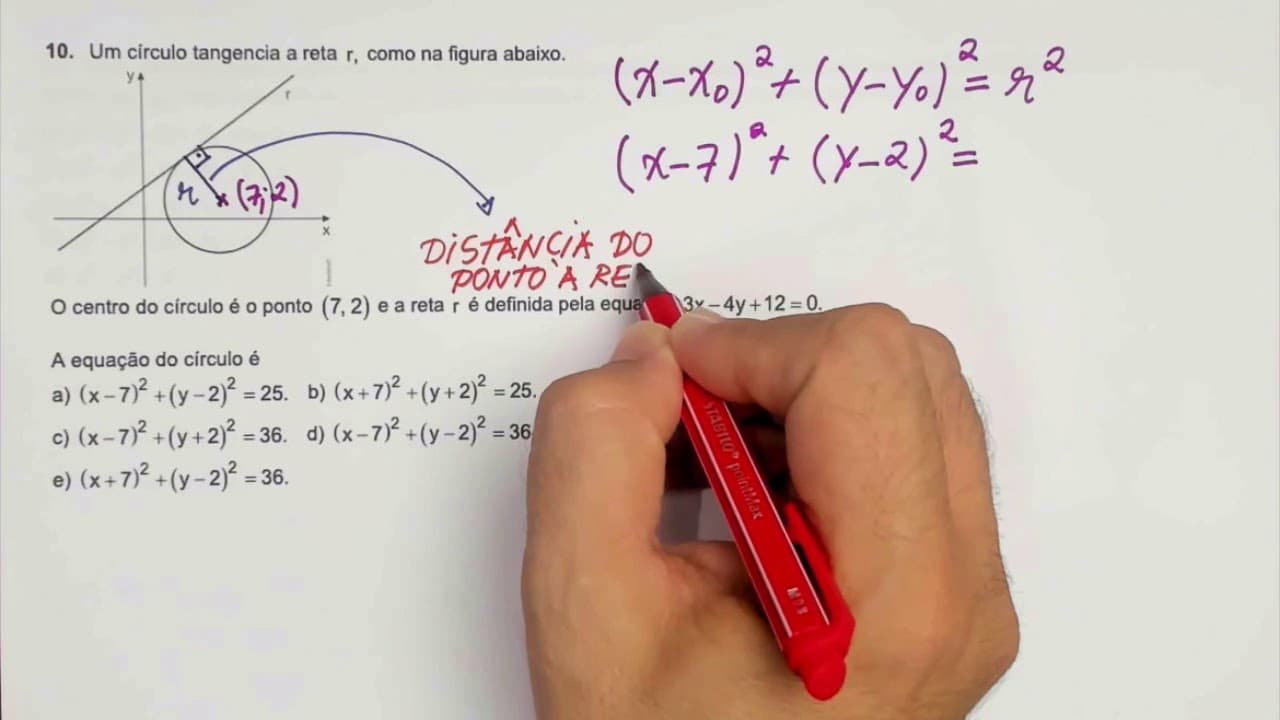 10. Um círculo tangencia a reta r, como na figura abaixo.
y
r
r
(7; 2)
x
(x-x₀)² + (y-y₀)² = r²
(x-7)² + (y-2)² =
DISTÂNCIA DO
PONTO À RE
O centro do círculo é o ponto (7, 2) e a reta r é definida pela equa 3x – 4y + 12 = 0.
A equação do círculo é
a) (x – 7)² + (y – 2)² = 25. b) (x + 7)² + (y + 2)² = 25.
c) (x – 7)² + (y + 2)² = 36. d) (x – 7)² + (y – 2)² = 36
e) (x + 7)² + (y – 2)² = 36.
STABILO® pointMax